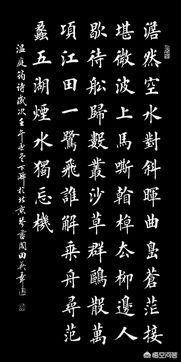 澹然空水對斜暉曲島蒼茫接
翠微波上馬嘶看棹去柳邊人
歇待船歸數叢沙草群鷗散萬
頃江田一鷺飛誰解乘舟尋范
蠡五湖煙水獨忘機
溫庭筠詩歲次壬午於北京田英章
悟空问答